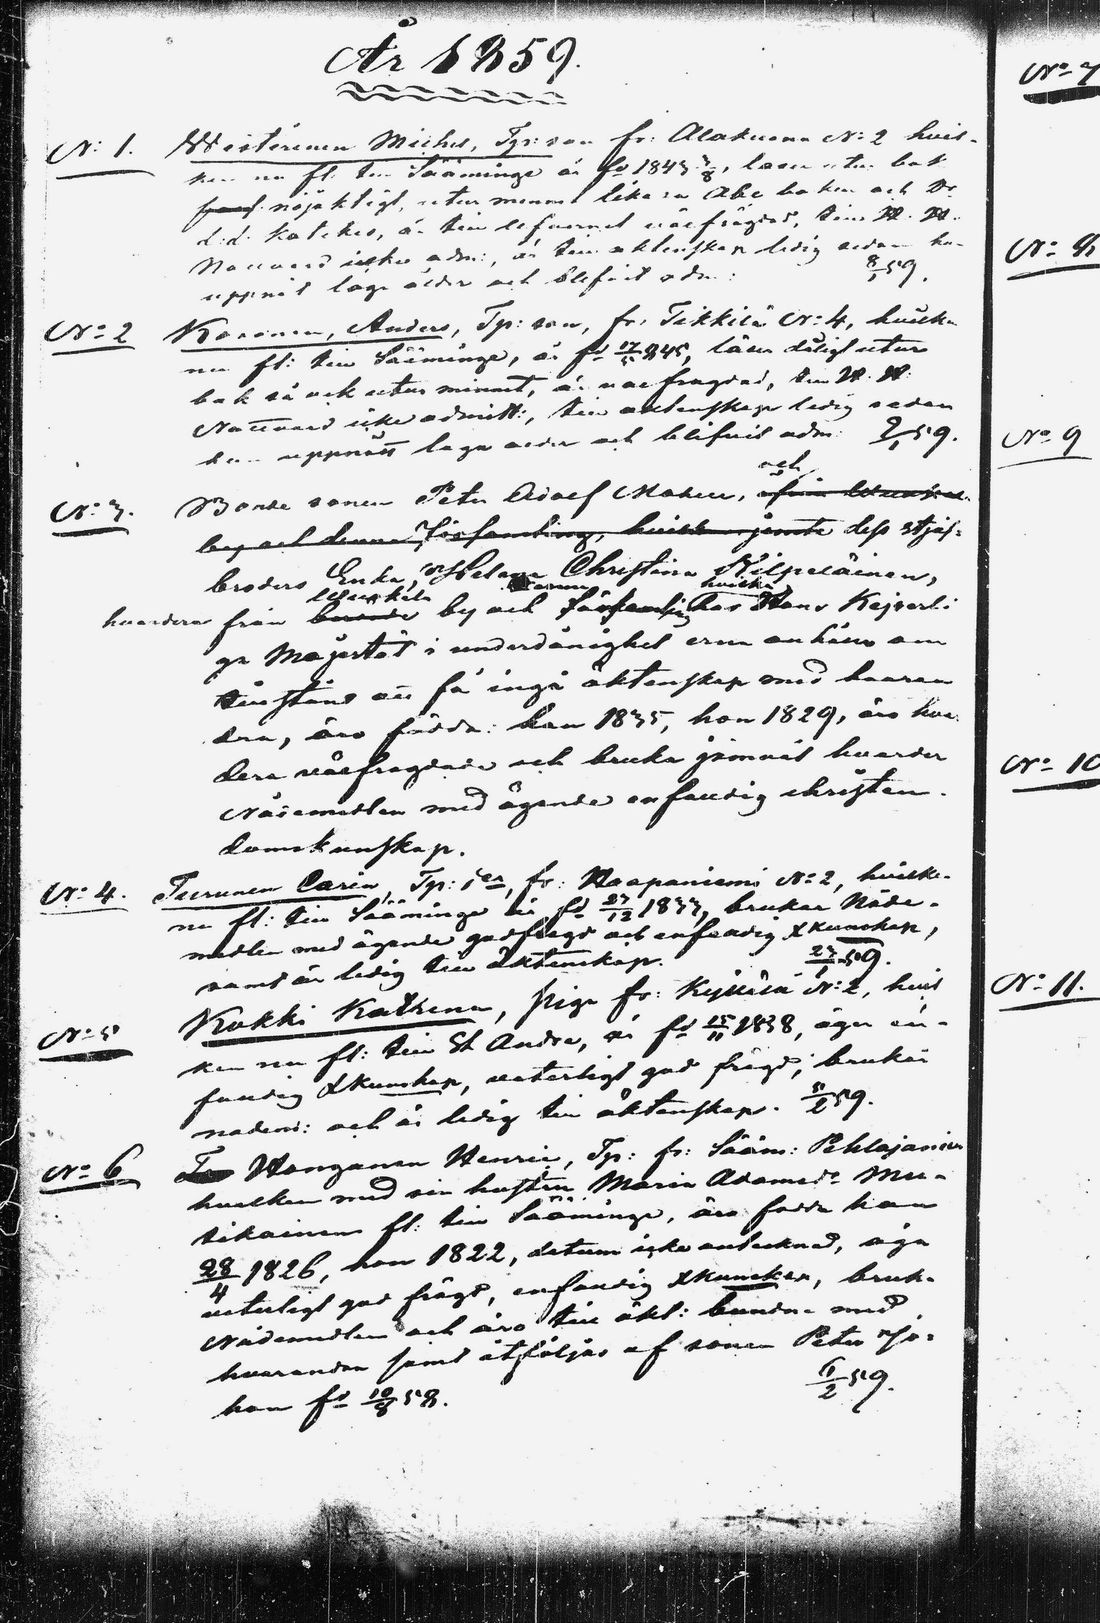 År 1859.
N:o 7
N:o 1. Wistirinen Michel, Tp: son fr: Alakuona N:o 2 hvil-
ken nu fl: till Sääminge är fd 1843, läser utur bok
nöjaktigt, utur minnet likaså Abc boken och Dr
d: d: Katekes, är till lefvernet välfrägdad, till H. H.
Nattvard icke adm:, är till äktenskap ledig sedan han
uppnåt laga ålder och blifvit adm: 59.
N:o 8
N:o 2 Kosonen, Anders, Tp: son, fr: Tikkilä N:o 4, hvilken
nu fl: till Sääminge, är fd 17/5 1845, läser dåligt utur
bok så ock utur minnet, är välfrägdad, till H. H.
Nattvard icke admitt:, till äktenskap ledig sedan
han uppnått laga ålder och blifvit adm: 59.
N:o 9
och
N:o 3. Bonde sonen Peter Adolf
by och denna församling, hvilken jemte dess styf-
broders Enka, Helena Christina Kilpeläinen,
hvilka
hvardera från by och församling hos Hans Kejserli-
ga Majestät i underdånighet om
tillstånd att få ingå äktenskap med hvaran
dra, äro födda: han 1835, hon 1829, äro hvar
dera välfrägdade och bruka jemväl hvarder
Nådemedlen med ägande enfaldig christen-
domskunskap.
N:o 10
N:o 4. Turunen Carin, Tp: r, fr: Haapaniemi N:o 2, hvilken
nu fl: till Sääminge är fd 27/12 1833, brukar Nåde-
medlen med ägande godfrägd och enfaldig xkunskap,
samt är ledig till äktenskap. 59.
N:o 11.
N:o 5 Kokki Kathrina, piga fr: N:o 2, hvil
ken nu fl: till St Andre, är fd 15/11 1838, äger en-
faldig xkunskap, veterligt god frägd, brukar
nådem: och är ledig till äktenskap. 11/2 59.
N:o 6 Hanganen Henric, Tp: fr: Sääm: Pehlajaniemi
hvilken med sin hustru Maria Adamsdr Mu-
tikainen fl: till Sääminge, äro födda han
28/4 1826, hon 1822, datum icke antecknad, äga
veterligt god frägd, enfaldig xkunskap, bruk-
Nådemedlen och äro till äkt: bundne med
hvarandra samt åtföljas af sonen Petter Jo-
han fd 10/8 58. 6/2 59.